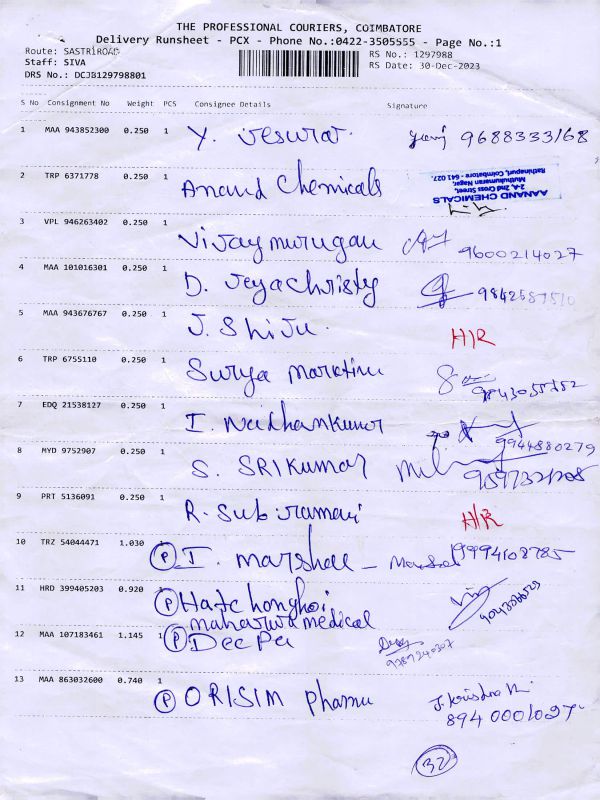 THE PROFESSIONAL COURIERS, COIMBATORE
Delivery Runsheet - PCX - Phone No.:0422-3505555 - Page No.:1
Route: SASTRIROAD
RS No.: 1297988
Staff: SIVA
RS Date: 30-Dec-2023
DRS No.: DCJB129798801
S No Consignment No Weight PCS Consignee Details Signature
1 MAA 943852300 0.250 1 Y. 9688333168
2 TRP 6371778 0.250 1 Anand Chemicals
AANAND CHEMICALS
2-A, 2nd Cross Street,
Muthukumaran Nagar,
Rathinapuri, Coimbatore - 641 027.
3 VPL 946263402 0.250 1 Vijaymurugan 9600214027
4 MAA 101016301 0.250 1 D. Jeyachristy 9842587510
5 MAA 943676767 0.250 1 J. Shiju. H/R
6 TRP 6755110 0.250 1 Surya
7 EDQ 21538127 0.250 1 I. 9944880279
8 MYD 9752907 0.250 1 S. SRIKUMAR
9 PRT 5136091 0.250 1 R. Subiramani H/R
10 TRZ 54044471 1.030 P I. Marshall - 9994108785
11 HRD 399405203 0.920 1 P
maharwa medical
12 MAA 107183461 1.145 1 P DeePa 9789240307
13 MAA 863032600 0.740 1 P ORISIM Pharma J. Krishna
8940001027
32